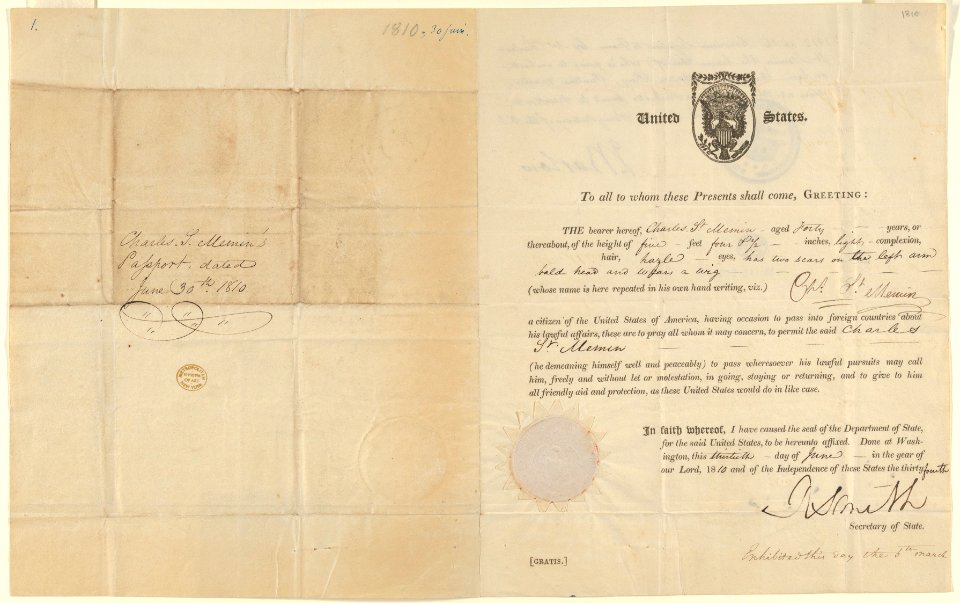 1.
1810, 30 juin.
Charles. S. Memin's
Passport. dated
June 30th. 1810
METROPOLITAN
MUSEUM
OF ART
NEW YORK
1810
United States.
To all to whom these Presents shall come, GREETING:
THE bearer hereof, Charles St Memin — aged Forty — years, or
thereabout, of the height of five — feet four & 1/2 — inches, light, — complexion,
hair, hazle — eyes, has two scars on the left arm
bald head and wears a wig
(whose name is here repeated in his own hand writing, viz.) St Memin
a citizen of the United States of America, having occasion to pass into foreign countries about
his lawful affairs, these are to pray all whom it may concern, to permit the said Charles
St. Memin
(he demeaning himself well and peaceably) to pass wheresoever his lawful pursuits may call
him, freely and without let or molestation, in going, staying or returning, and to give to him
all friendly aid and protection, as these United States would do in like case.
In faith whereof, I have caused the seal of the Department of State,
for the said United States, to be hereunto affixed. Done at Wash-
ington, this thirtieth — day of June — in the year of
our Lord, 1810 and of the Independence of these States the thirty fourth
R Smith
Secretary of State.
[GRATIS.]
Exhibited this day the 6th march